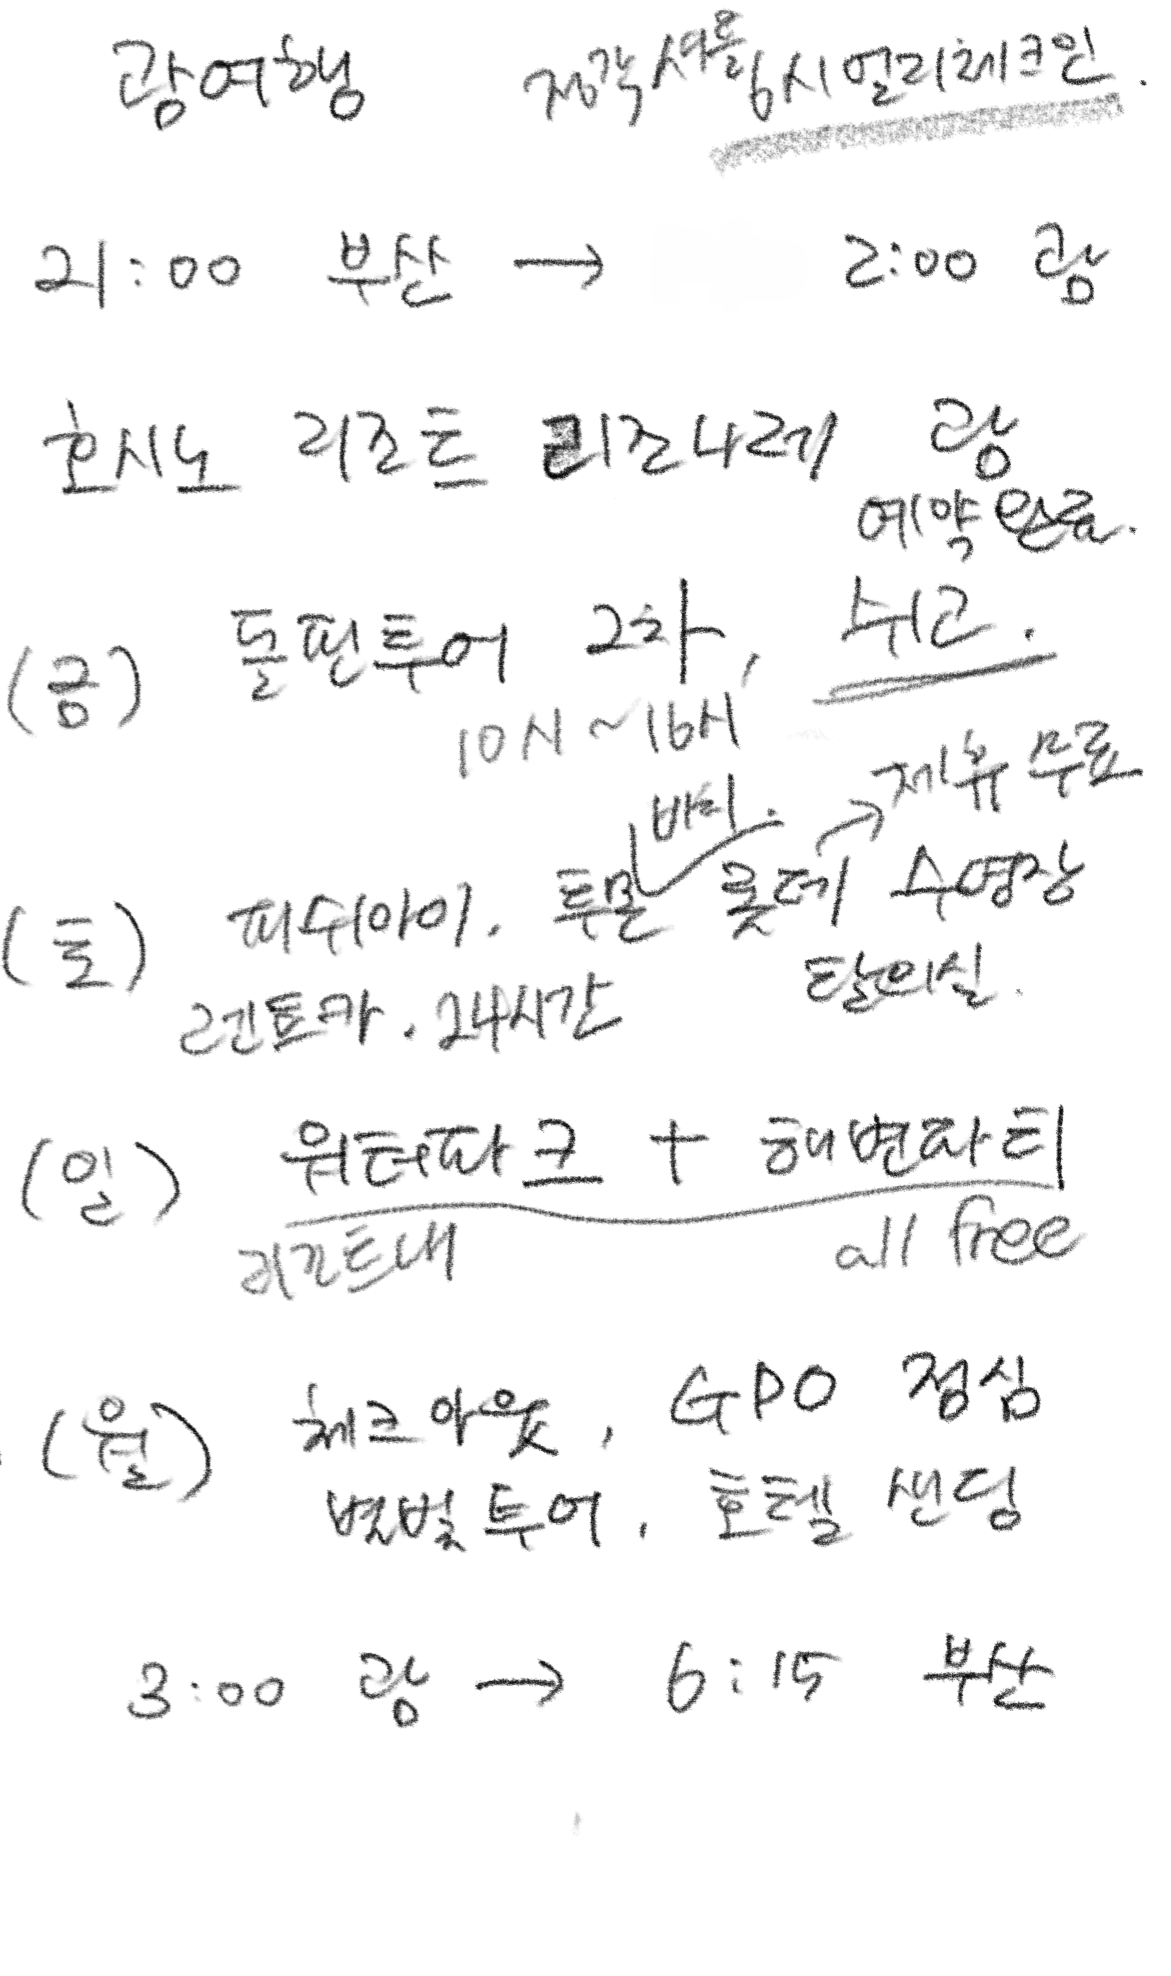 괌여행 정각 샤를 6시 얼리체크인.
21:00 부산 → 2:00 괌
호시노 리조트 리조나레 괌
예약 완료.
(금) 돌핀투어 2차, 쉬고.
10시~16시
바다. → 제휴 무료
(토) 피쉬아이. 투몬 롯데 수영장
렌트카. 24시간 탈의실.
(일) 워터파크 + 해변파티
리조트내 all free
(월) 체크아웃, GPO 점심
별빛투어, 호텔 샌딩
3:00 괌 → 6:15 부산